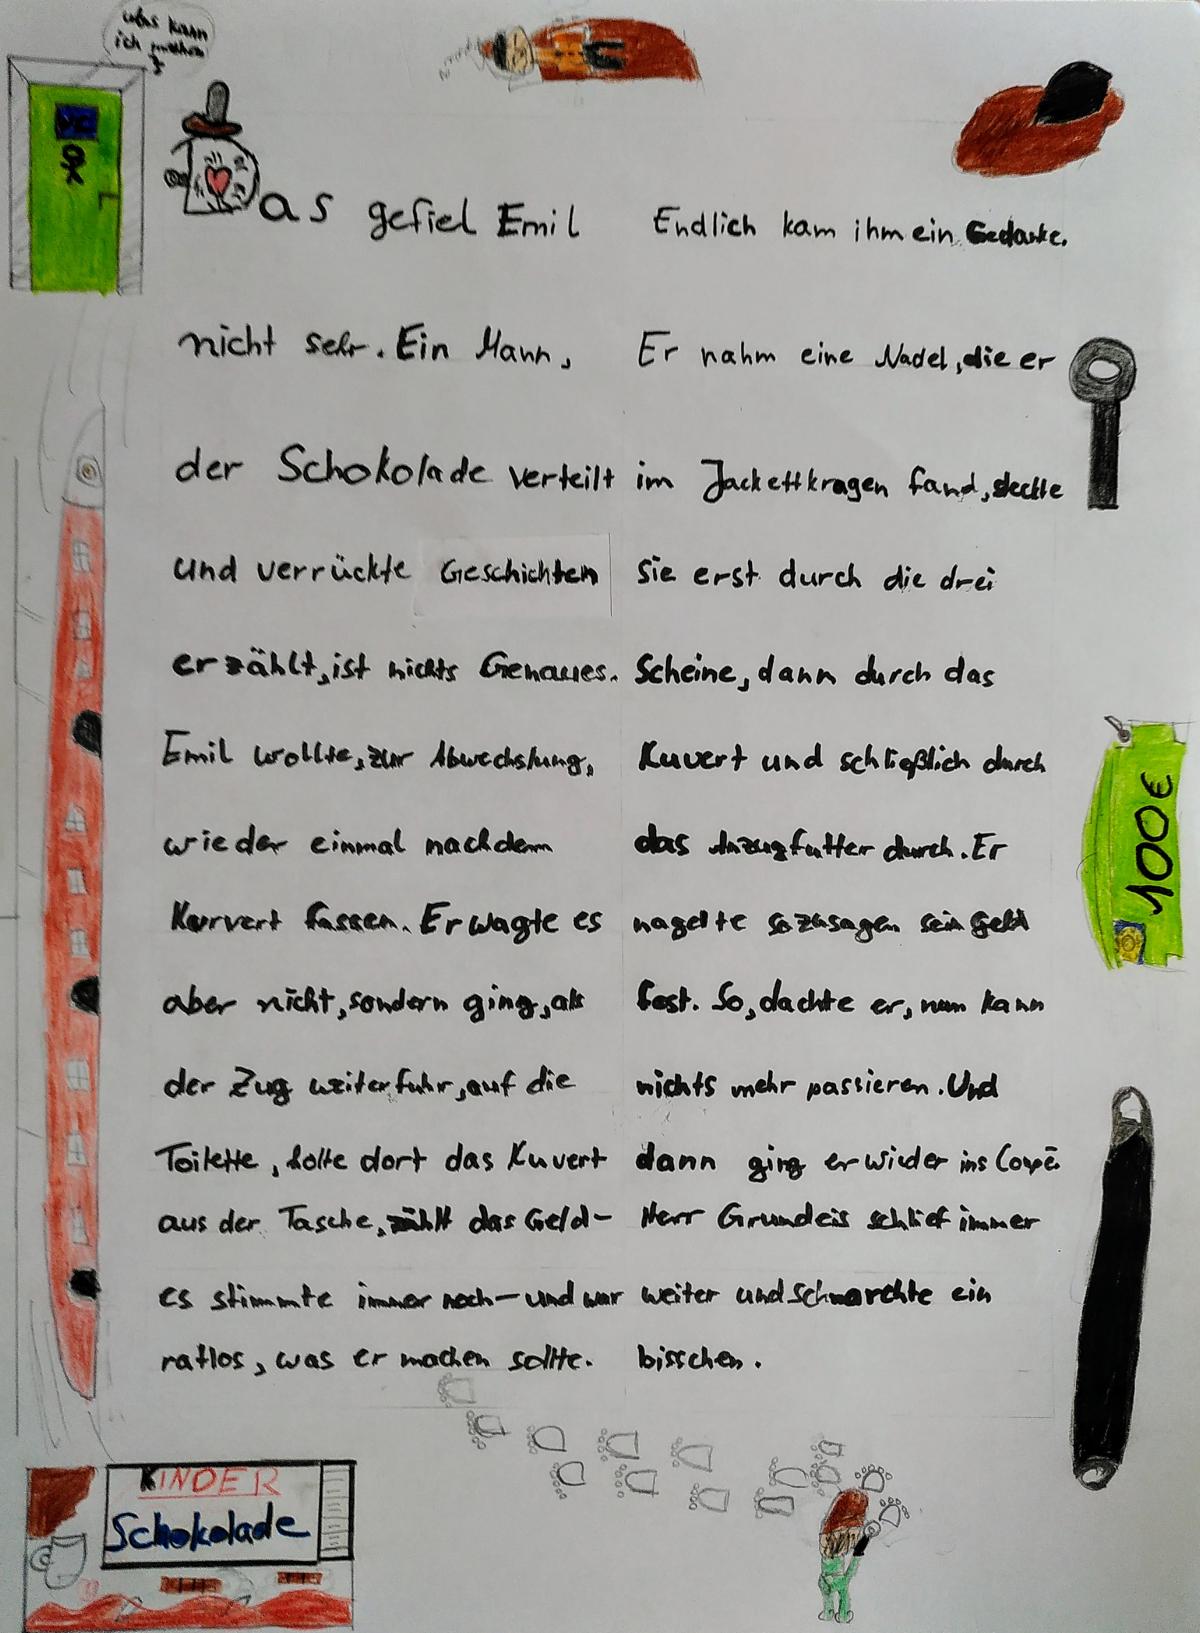 was kann
ich machen
?
WC
Das gefiel Emil
nicht sehr. Ein Mann,
der Schokolade verteilt
und verrückte Geschichten
erzählt, ist nichts Genaues.
Emil wollte, zur Abwechslung,
wieder einmal nach dem
Kurvert fassen. Er wagte es
aber nicht, sondern ging, als
der Zug weiterfuhr, auf die
Toilette, holte dort das Kuvert
aus der Tasche, zählt das Geld-
es stimmte immer noch- und war
ratlos, was er machen sollte.
Endlich kam ihm ein Gedanke.
Er nahm eine Nadel, die er
im Jackettkragen fand, steckte
sie erst durch die drei
Scheine, dann durch das
Kuvert und schließlich durch
das Anzugfutter durch. Er
nagelte sozusagen sein Geld
fest. So, dachte er, nun kann
nichts mehr passieren. Und
dann ging er wieder ins Coupé.
Herr Grundeis schlief immer
weiter und schnarchte ein
bisschen.
100€
KINDER
Schokolade